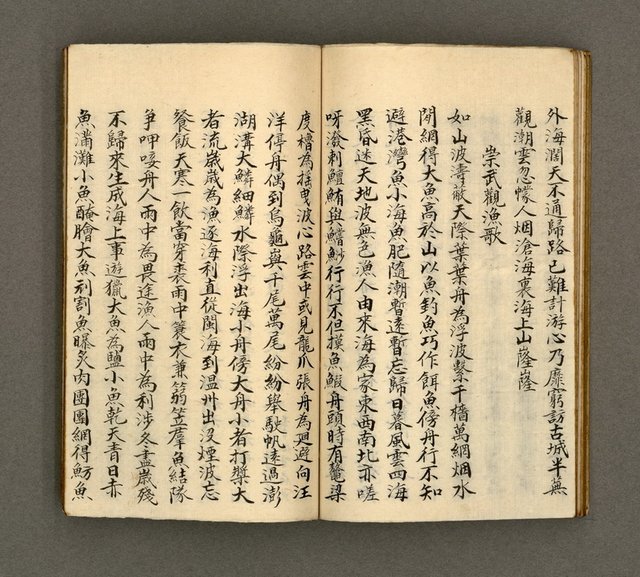 外海濶天不通歸路已難計游心乃靡窮訪古城半蕪
觀潮雲忽幪人烟滄海裏海上山窿窿
崇武觀漁歌
如山波濤蔽天際葉葉舟為浮波繫千檣萬網烟水
開網得大魚高於山以魚釣魚巧作餌魚傍舟行不知
避港灣魚小海魚肥隨潮暫遠暫忘歸日暮風雲四海
黑昏迷天地波無色漁人由來海為家東西南北亦嗟
呀潑剌鱣鮪與鱨魦行行不但摸魚鰕舟頭時有鼇梁
度檣為搖曳波心路雲中或見龍爪張舟為廻避向汪
洋停舟偶到烏龜嶼千尾萬尾紛紛舉駛帆遠過澎
湖溝大鱗細鱗水際浮出海小舟傍大舟小者打槳大
者流歲歲為漁逐海利直從閩海到溫州出沒煙波忘
餐飯天寒一飲當穿裘雨中簑衣兼篛笠羣魚結隊
爭呷唼舟人雨中為畏途漁人雨中為利涉冬盡歲殘
不歸來生成海上事遊獵大魚為鹽小魚乾天青日赤
魚滿灘小魚醃膾大魚刲割魚曝炙肉團團網得魴魚